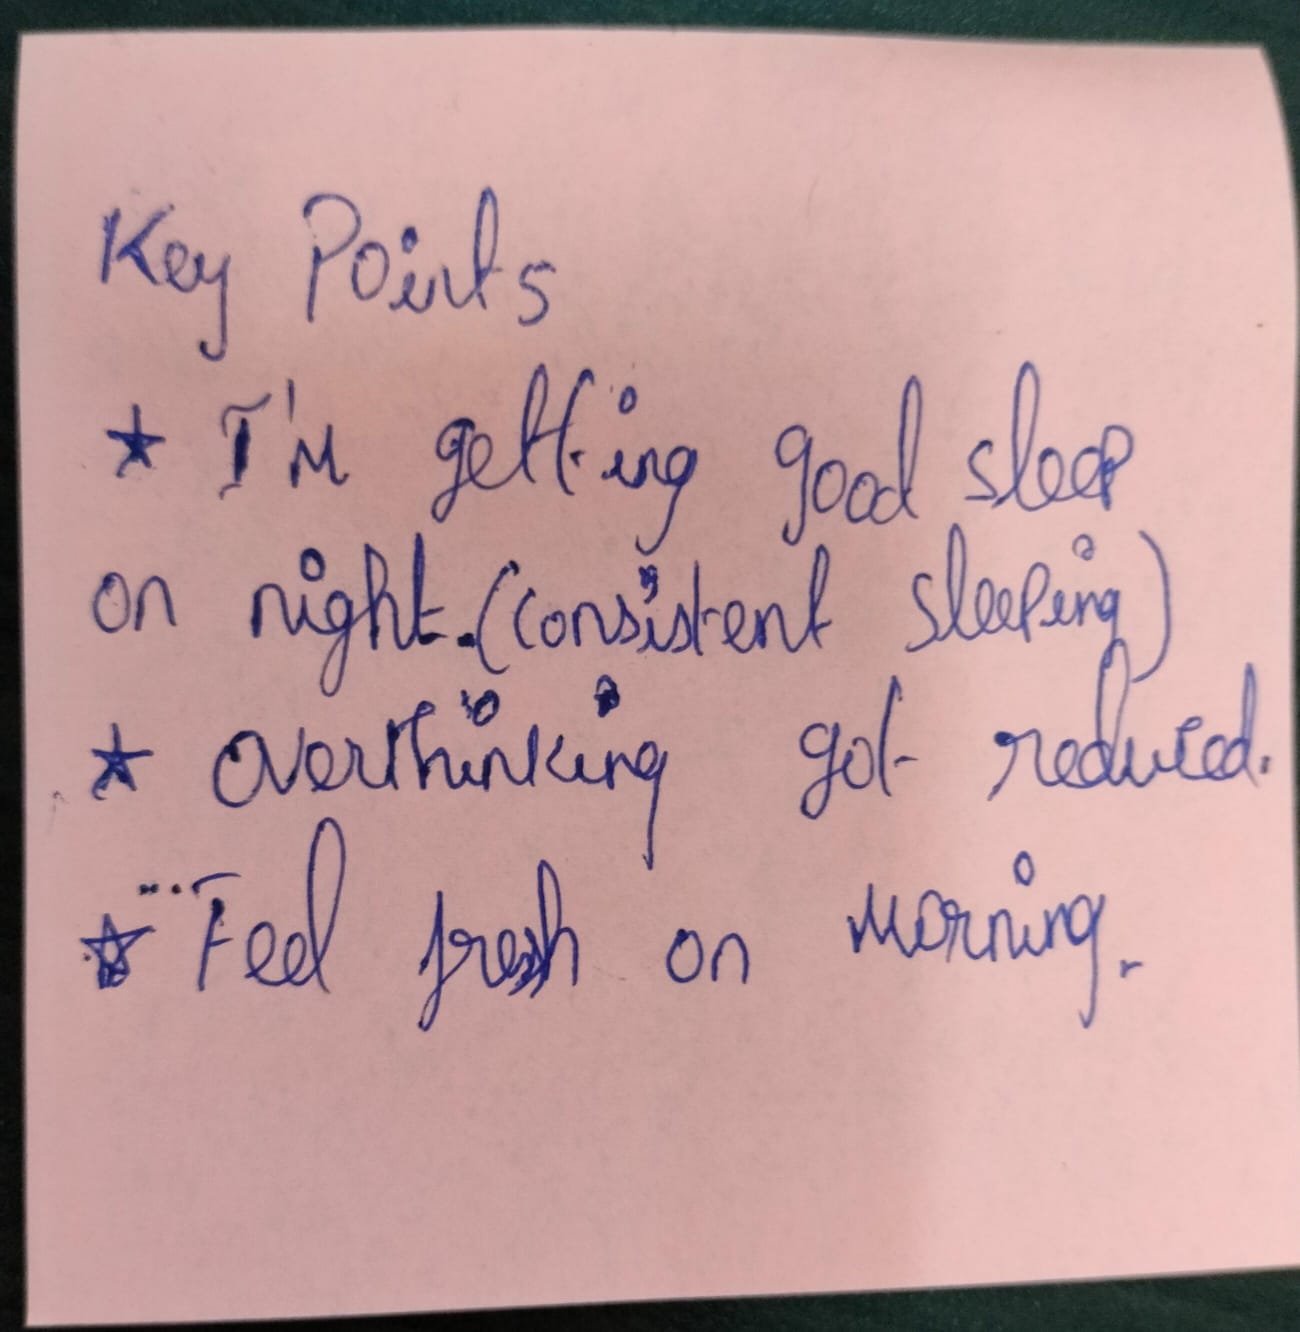 Key Points
★ I'm getting good sleep
on night. (consistent sleeping)
★ Overthinking got reduced.
★ Feel fresh on morning.